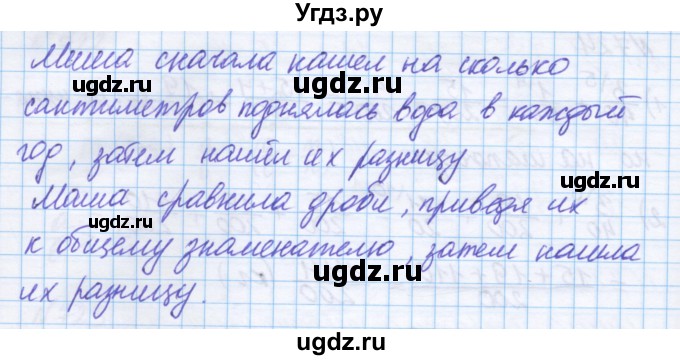 Угдз.ру
Миша сначала нашел на сколько
сантиметров поднялась вода в каждый
год, затем нашёл их разницу
Маша сравнила дроби, приведя их
к общему знаменателю, затем нашла
их разницу.
ugdz.ru
ugdz.ru
ugdz.ru
ugdz.ru
ugdz.ru
ugdz.ru
ugdz.ru
ugdz.ru
ugdz.ru
ugdz.ru
ugdz.ru